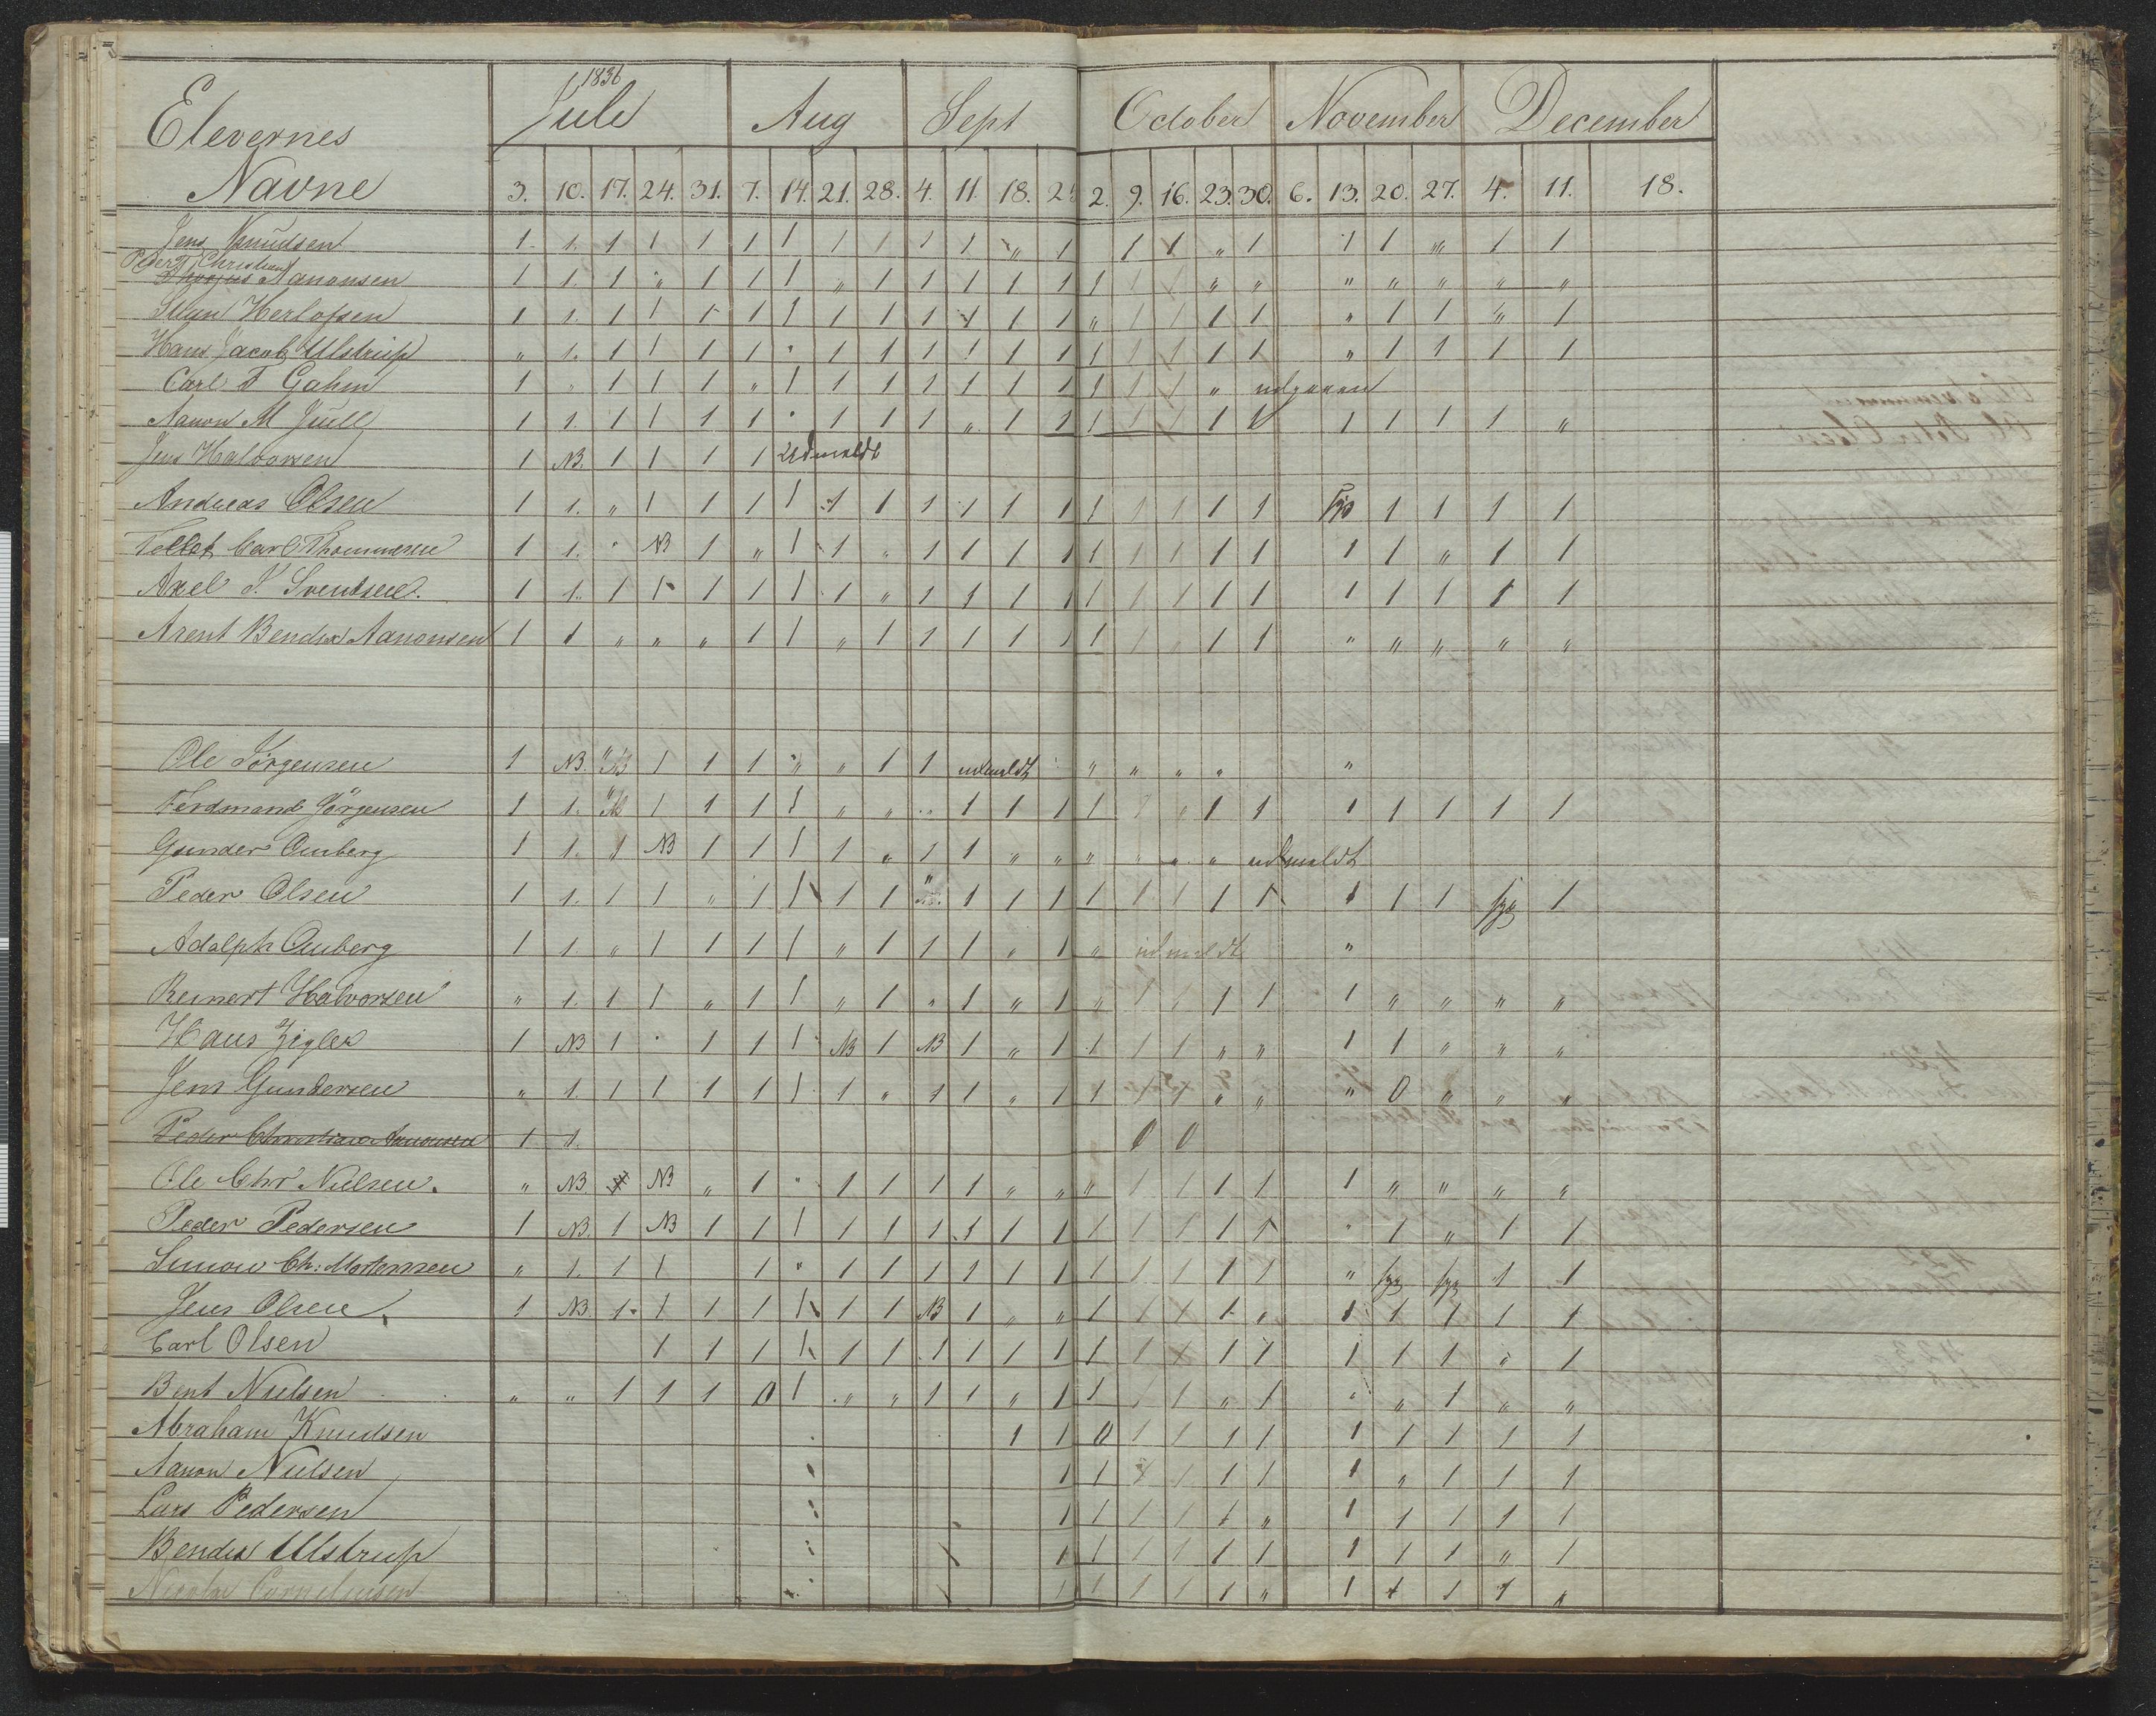 1836
Elevernes Juli Aug Sept October November December
Navne 3. 10. 17. 24. 31. 7. 14. 21. 28. 4. 11. 18. 25 2. 9. 16. 23. 30. 6. 13. 20. 27. 4. 11. 18.
Jens Knudsen 1 1. 1 1 1 1 1 1 1 1 1 " 1 1 1 " 1 1 1 " 1 1
Peder Christian
Aanonsen 1 1. 1 " 1 1 1 " 1 1 1 1 1 1 1 1 " " " " " " "
Herlofsen 1 1. 1 1 1 1 1 1 1 1 1 1 1 " 1 1 1 1 " 1 1 " 1
Hans Jacob Ulstrup " 1. 1 1 1 1 " 1 1 1 1 1 1 1 1 1 1 1 " 1 1 1 1
Carl F Gahm 1 " 1 1 1 " 1 1 1 1 1 1 1 1 1 1 " udgaaen
Aanon M Juell 1 1. 1 1 1 1 " 1 1 1 " 1 1 1 1 1 1 1 1 1 1 1 "
Jens Halvorsen 1 NB. 1 1 1 1 Udmeldt
Andreas Olsen 1 1. " 1 1 1 1 1 1 1 1 1 1 1 1 1 1 1 syg 1 1 1 1
Tellef Carl Thommesen 1 1. " NB 1 " 1 1 " 1 1 1 1 1 1 1 1 1 1 1 " 1 1
Axel J. Sventsen. 1 1. 1 1 1 1 1 1 " 1 1 1 1 1 1 1 1 1 1 1 1 1 1
Arent Bendix Aanonsen 1 1 " " " 1 1 " 1 1 1 1 1 1 1 " 1 1 " " " " "
Ole Jörgensen 1 NB. NB 1 1 1 " " 1 1 udmeldt " " " " "
Ferdinand Jörgensen 1 1. NB 1 1 1 1 " " " 1 1 1 1 1 " 1 1 1 1 1 1 1
Gunder Omberg 1 1. 1 NB 1 1 1 1 " 1 1 " " " " " " udmeldt
Peder Olsen 1 1. 1 1 " 1 1 1 1 " 1 1 1 1 1 1 1 1 1 1 1 syg 1
Adolph Omberg 1 1. " 1 1 1 1 " 1 1 1 " 1 " udmeldt "
Reinert Halvorsen " 1. 1 1 " 1 1 " 1 " 1 " 1 " 1 1 1 1 1 " " " "
Hans Zigler 1 NB 1 " 1 1 1 NB 1 NB 1 " 1 1 1 1 " " 1 1 " " "
Jens Gundersen " 1. 1 1 1 1 1 1 " 1 1 " 1 1 1 1 " " " 0 " " "
Peder Christian Aanonsen 1 1. 0 0
Ole Chr Nielsen. " NB NB " 1 " 1 1 1 1 " " " 1 1 1 1 1 " " " "
Peder Pedersen 1 NB. 1 NB 1 1 1 1 1 1 1 1 1 1 1 1 1 1 " 1 " 1 1
Simon Ch: Mortensen " 1. 1 1 1 " 1 1 1 1 1 1 1 1 1 1 1 " syg syg 1 1
Jens Olsen 1 NB. 1 1 1 1 1 1 1 NB 1 " " 1 1 1 1 " 1 1 1 1 1
Carl Olsen 1 1 1 1 1 1 1 1 1 1 1 1 1 1 1 1 1 1 " 1
Bent Nielsen " " 1 1 1 0 1 " " 1 1 " 1 1 1 1 " 1 " " 1 " "
Abraham Knudsen 1 1 0 1 1 1 1 1 1 1 1 1
Aanon Nielsen 1 1 1 1 1 1 1 " 1 1 1
Lars Pedersen 1 1 1 1 1 " 1 1 1 1 1
Bendix Ulstrup 1 1 1 1 1 1 1 1 1 " 1
Nicolai Corneliusen 1 1 1 1 1 " 1 1 1 1 "